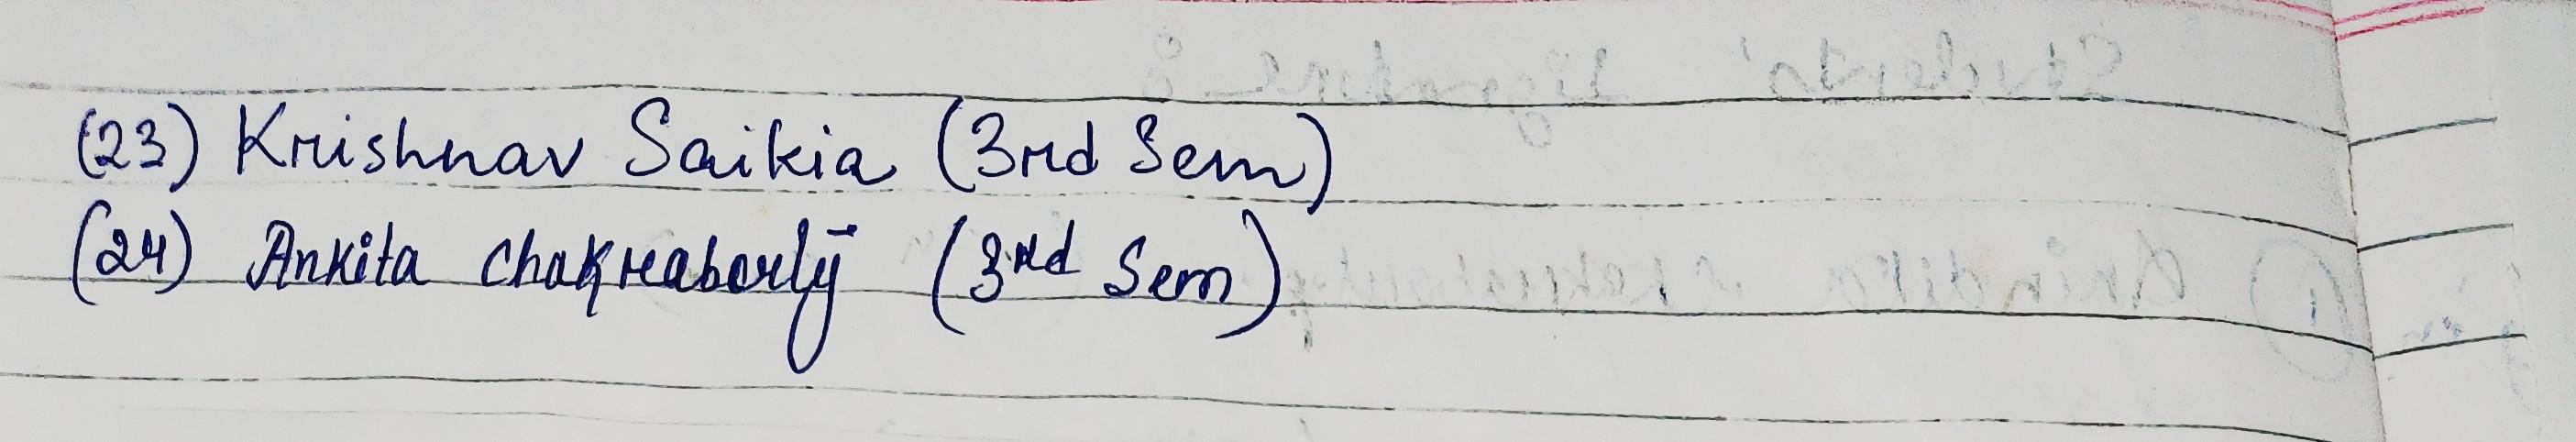 (23) Krishnav Saikia (3rd Sem)
(24) Ankita Chakraborty (3rd Sem)